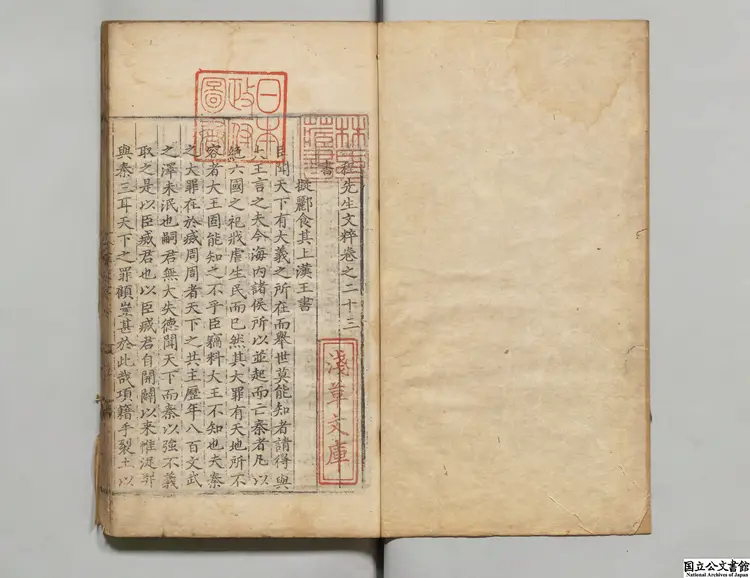 日本政府圖書
林氏藏書
程先生文粹卷之二十三
淺草文庫
書
擬酈食其上漢王書
臣聞天下有大義之所在而舉世莫能知者請得與
大王言之夫今海內諸侯所以並起而亡秦者凡以
絶六國之祀戕虐生民而已然其大罪有天地所不
容者大王固能知之不乎臣竊料大王不知也夫秦
之大罪在於滅周周者天下之共主歷年八百文武
之澤未泯也嗣君無大失德聞天下而秦以強不義
取之是以臣滅君也以臣滅君自開闢以來惟浞羿
與秦三耳天下之罪顧豈甚於此哉項籍手裂土以
国立公文書館
National Archives of Japan